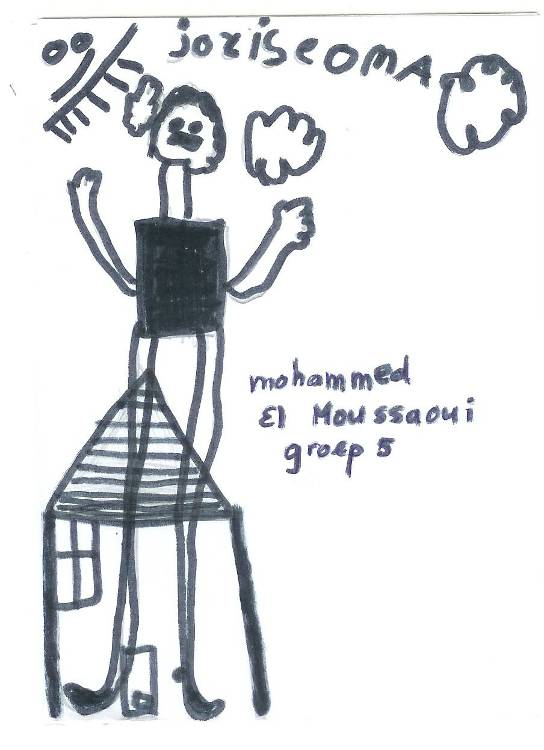 joriseOMA
mohammed
El Moussaoui
groep 5